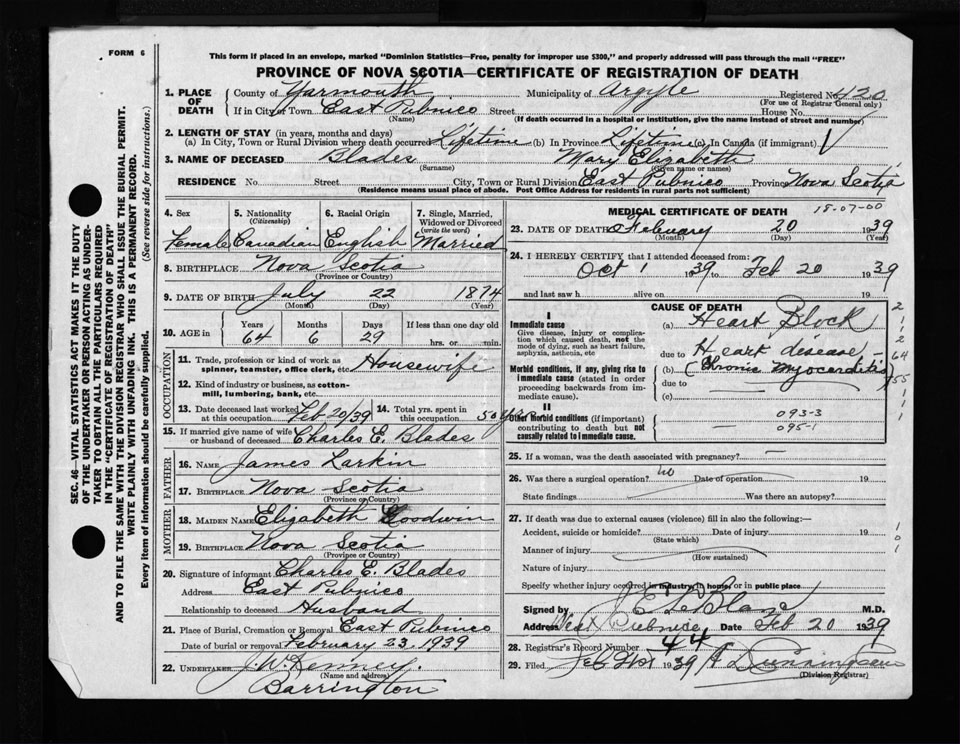 FORM 6
This form if placed in an envelope, marked "Dominion Statistics—Free, penalty for improper use $300," and properly addressed will pass through the mail "FREE"
PROVINCE OF NOVA SCOTIA—CERTIFICATE OF REGISTRATION OF DEATH
1. PLACE OF DEATH County of Yarmouth Municipality of Argyle Registered No. 120
(For use of Registrar General only)
If in City or Town East Pubnico Street House No.
(Name) (If death occurred in a hospital or institution, give the name instead of street and number)
2. LENGTH OF STAY (in years, months and days)
(a) In City, Town or Rural Division where death occurred Lifetime (b) In Province Lifetime (c) In Canada (if immigrant)
3. NAME OF DECEASED Blades Mary Elizabeth
(Surname) (Given name or names)
RESIDENCE No. Street City, Town or Rural Division East Pubnico Province Nova Scotia
(Residence means usual place of abode. Post Office Address for residents in rural parts not sufficient)
4. Sex 5. Nationality (Citizenship) 6. Racial Origin 7. Single, Married, Widowed or Divorced (write the word)
Female Canadian English Married
8. BIRTHPLACE Nova Scotia
(Province or Country)
9. DATE OF BIRTH July 22 1874
(Month) (Day) (Year)
10. AGE in Years Months Days If less than one day old
64 6 29 hrs. or min.
OCCUPATION
11. Trade, profession or kind of work as spinner, teamster, office clerk, etc. Housewife
12. Kind of industry or business, as cotton-mill, lumbering, bank, etc.
13. Date deceased last worked at this occupation Feb 20/39 14. Total yrs. spent in this occupation 50 yrs
15. If married give name of wife or husband of deceased Charles E. Blades
FATHER
16. NAME James Larkin
17. BIRTHPLACE Nova Scotia
(Province or Country)
MOTHER
18. MAIDEN NAME Elizabeth Goodwin
19. BIRTHPLACE Nova Scotia
(Province or Country)
20. Signature of informant Charles E. Blades
Address East Pubnico
Relationship to deceased Husband
21. Place of Burial, Cremation or Removal East Pubnico
Date of burial or removal February 23, 1939
22. UNDERTAKER J. W. Kenney.
(Name and address)
Barrington
MEDICAL CERTIFICATE OF DEATH 18-07-00
23. DATE OF DEATH February 20 1939
(Month) (Day) (Year)
24. I HEREBY CERTIFY that I attended deceased from:
Oct 1 1939 to Feb 20 1939
and last saw h alive on 19
CAUSE OF DEATH
I
Immediate cause
Give disease, injury or complication which caused death, not the mode of dying, such as heart failure, asphyxia, asthenia, etc
(a) Heart Block
due to Heart disease
Morbid conditions, if any, giving rise to immediate cause (stated in order proceeding backwards from immediate cause)
(b) (Chronic Myocarditis)
due to
(c)
II
Other morbid conditions (if important) contributing to death but not causally related to immediate cause.
093-3
095-1
25. If a woman, was the death associated with pregnancy? —
26. Was there a surgical operation? no Date of operation 19
State findings Was there an autopsy?
27. If death was due to external causes (violence) fill in also the following:—
Accident, suicide or homicide? Date of injury 19
(State which)
Manner of injury
(How sustained)
Nature of injury
Specify whether injury occurred in industry, in home, or in public place
Signed by J. E. LeBlanc M.D.
Address West Pubnico Date Feb 20 1939
28. Registrar's Record Number 44
29. Filed Feb 21st 1939
(Division Registrar)
SEC. 46—VITAL STATISTICS ACT MAKES IT THE DUTY
OF THE UNDERTAKER OR PERSON ACTING AS UNDER-
TAKER TO OBTAIN ALL THE PARTICULARS REQUIRED
IN THE "CERTIFICATE OF REGISTRATION OF DEATH"
AND TO FILE THE SAME WITH THE DIVISION REGISTRAR WHO SHALL ISSUE THE BURIAL PERMIT.
WRITE PLAINLY WITH UNFADING INK. THIS IS A PERMANENT RECORD.
Every item of information should be carefully supplied. (See reverse side for instructions.)